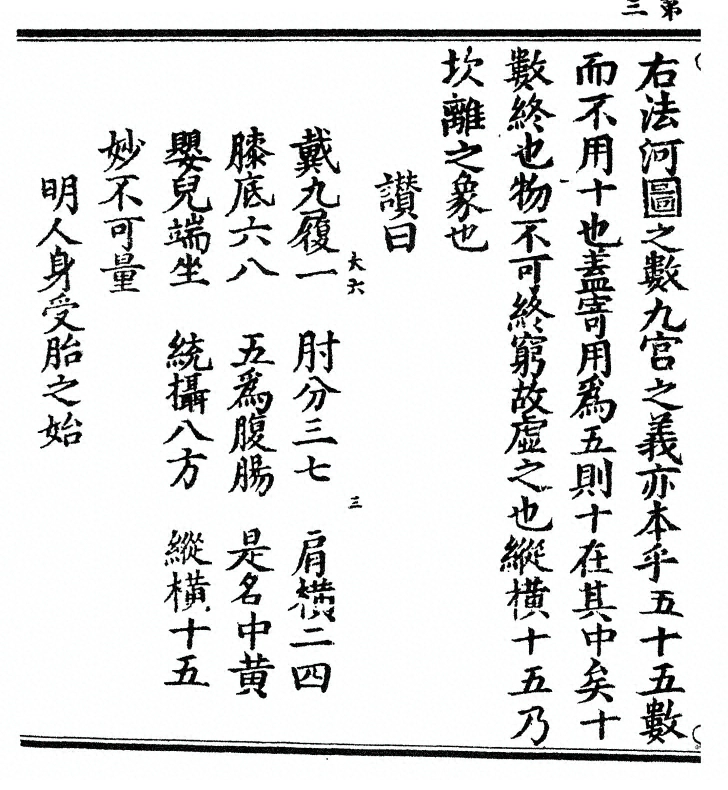 第三
右法河圖之數九宮之義亦本乎五十五數
而不用十也蓋寄用為五則十在其中矣十
數終也物不可終窮故虛之也縱橫十五乃
坎離之象也
讚曰
大六 三
戴九履一 肘分三七 肩橫二四
膝底六八 五為腹腸 是名中黃
嬰兒端坐 統攝八方 縱橫十五
妙不可量
明人身受胎之始